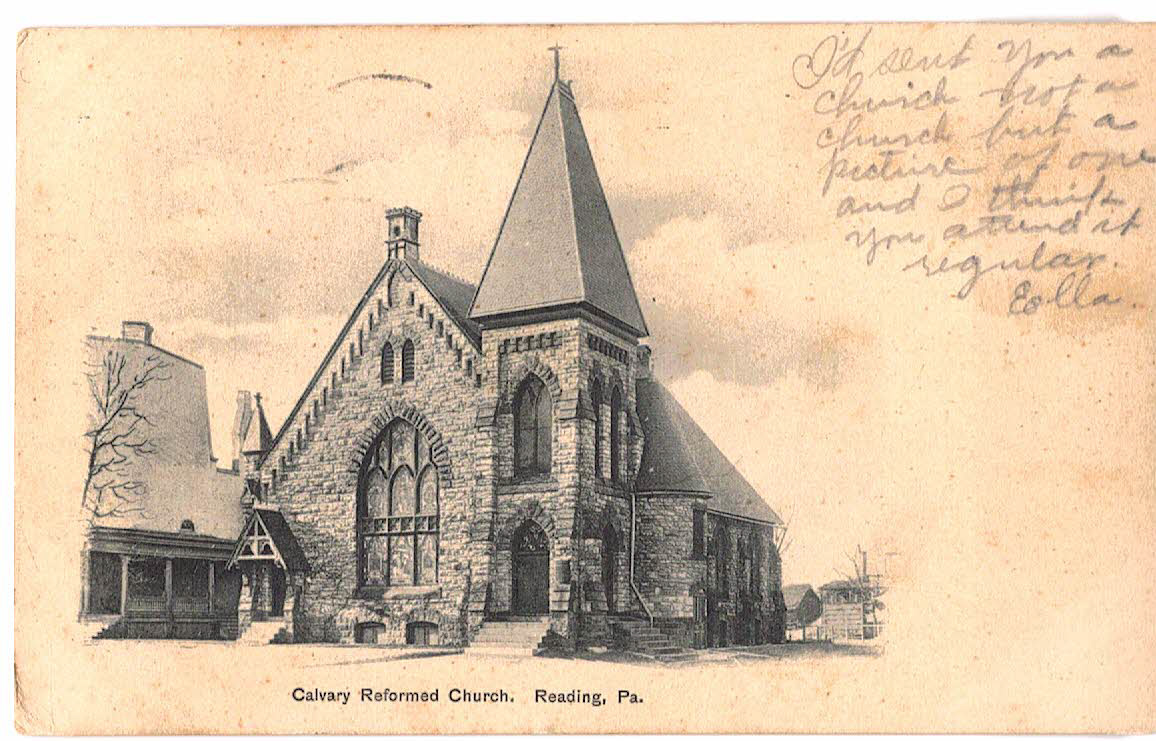 I'd sent you a
church not a
church but a
picture of one
and I think
you attend it
regular.
Eolla.
Calvary Reformed Church. Reading, Pa.